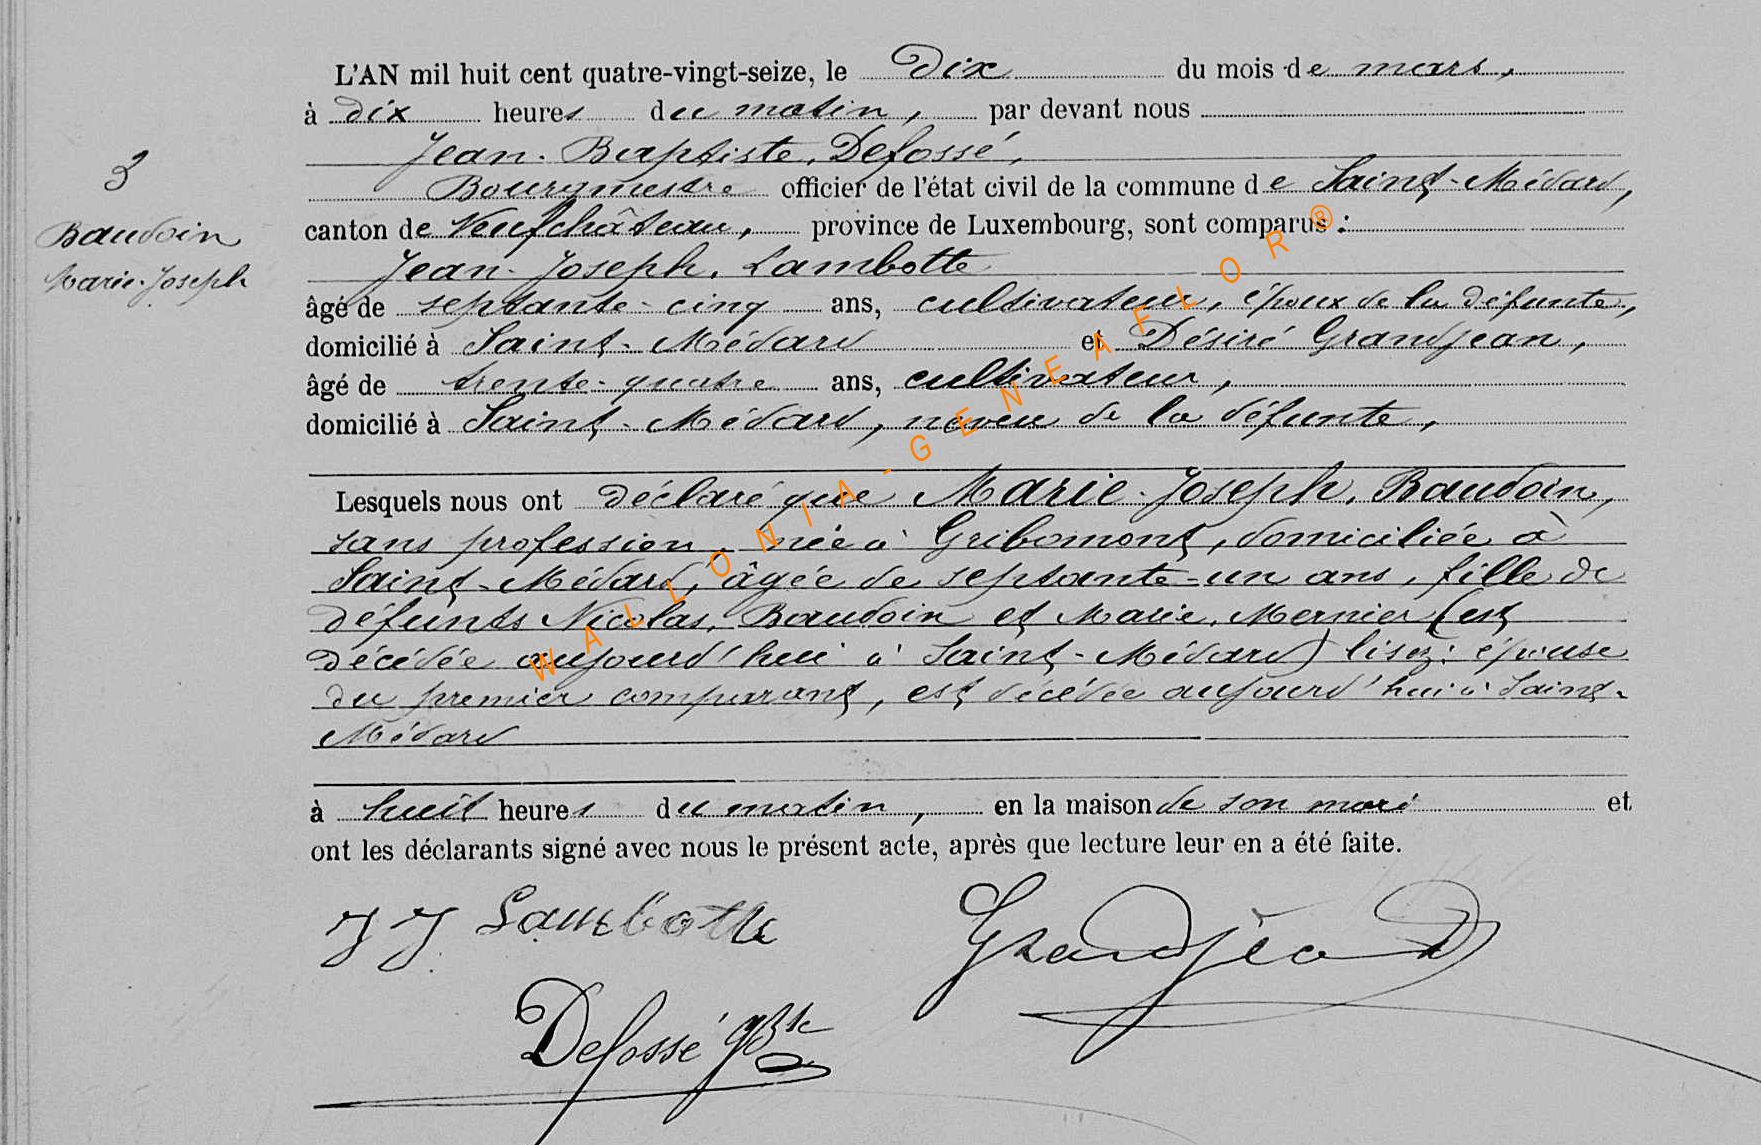 L'AN mil huit cent quatre-vingt-seize, le Dix du mois de mars,
à dix heures du matin, par devant nous
Jean-Baptiste, Defossé,
Bourgmestre officier de l'état civil de la commune de Saint-Médard,
canton de Neufchâteau, province de Luxembourg, sont comparus :
Jean-Joseph, Lambotte
âgé de septante-cinq ans, cultivateur, époux de la défunte,
domicilié à Saint-Médard et Désiré Grandjean,
âgé de trente-quatre ans, cultivateur,
domicilié à Saint-Médard, neveu de la défunte,
3
Baudoin
Marie-Joseph
Lesquels nous ont déclaré que Marie-Joseph, Baudoin,
sans profession, née à Gribomont, domiciliée à
Saint-Médard, âgée de septante-un ans, fille de
défunts Nicolas, Baudoin et Marie, Mernier (est
décédée aujourd'hui à Saint-Médard) lisez: épouse
du premier comparant, est décédée aujourd'hui à Saint-
Médard
à huit heures du matin, en la maison de son mari et
ont les déclarants signé avec nous le présent acte, après que lecture leur en a été faite.
JJ Lambotte
Grandjean
Defossé JBte
WALLONIA-GENEAFLOR®